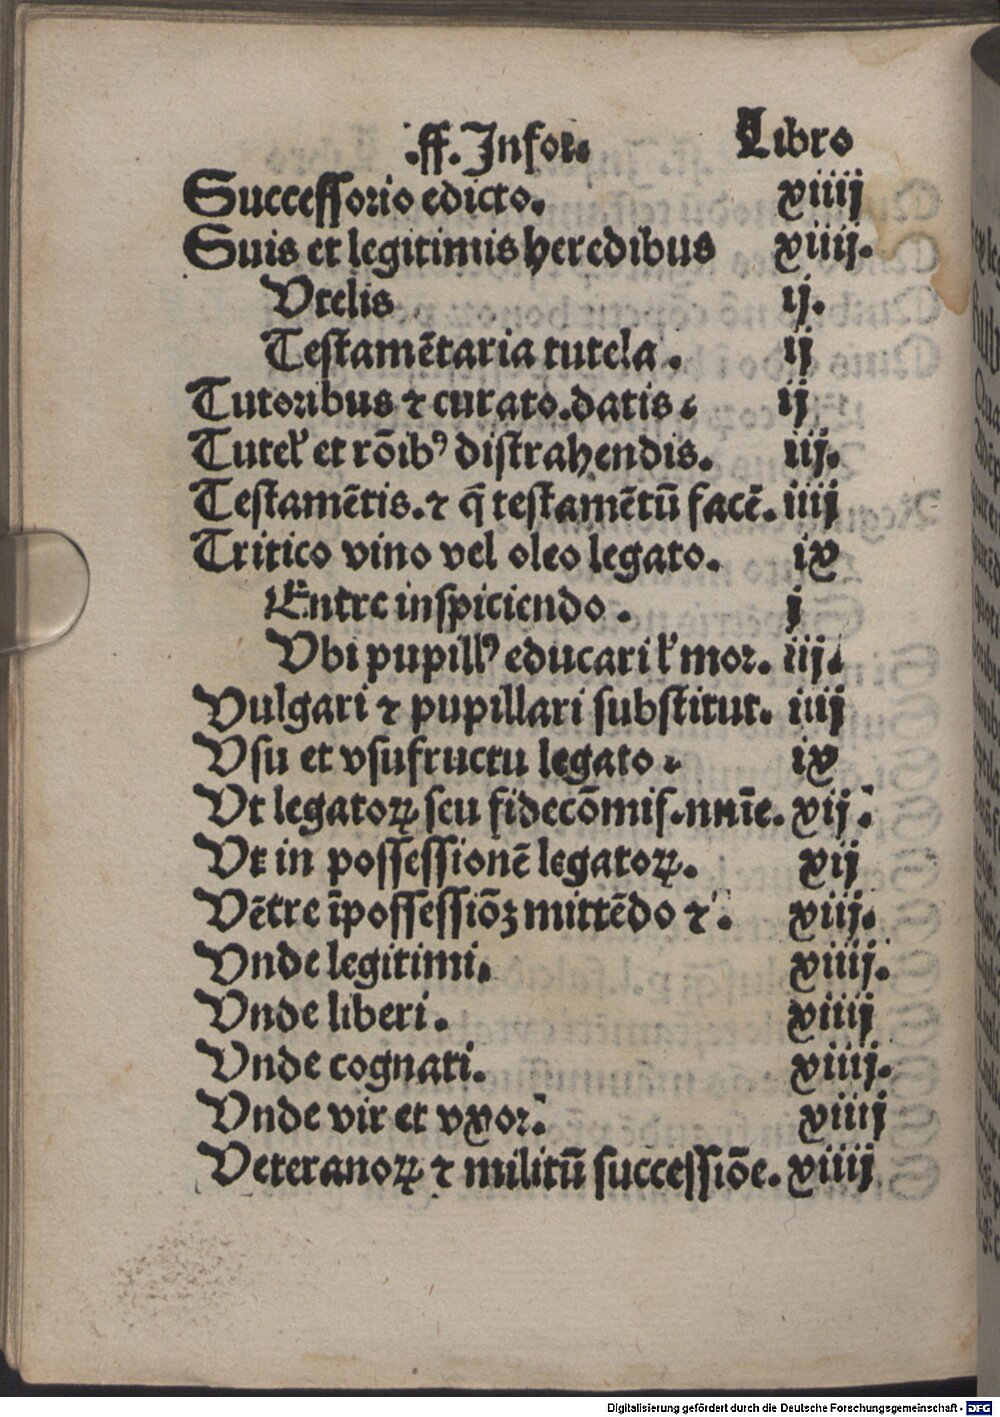 .ff. Infor. Libro
Successorio edicto. xiiij
Suis et legitimis heredibus xiiij.
Vtelis ij.
Testamētaria tutela. ij
Tutoribus ⁊ curato.datis. ij
Tutel' et rōibꝰ distrahendis. iij.
Testamētis.⁊ q̄ testamētū facē. iiij
Tritico vino vel oleo legato. ix
Entre inspiciendo. j
Vbi pupillꝰ educari ł mor. iij.
Vulgari ⁊ pupillari substitut. iiij
Vsu et vsufructu legato. ix
Vt legatoꝝ seu fidecōmis.nnīe. xij.
Vt in possessionē legatoꝝ. xij
Vētre īpossessiōꝫ mittēdo ⁊'. xiij.
Vnde legitimi. xiiij.
Vnde liberi. xiiij
Vnde cognati. xiiij.
Vnde vir et vxor. xiiij
Veteranoꝝ ⁊ militū successiōe. xiiij
Digitalisierung gefördert durch die Deutsche Forschungsgemeinschaft - DFG